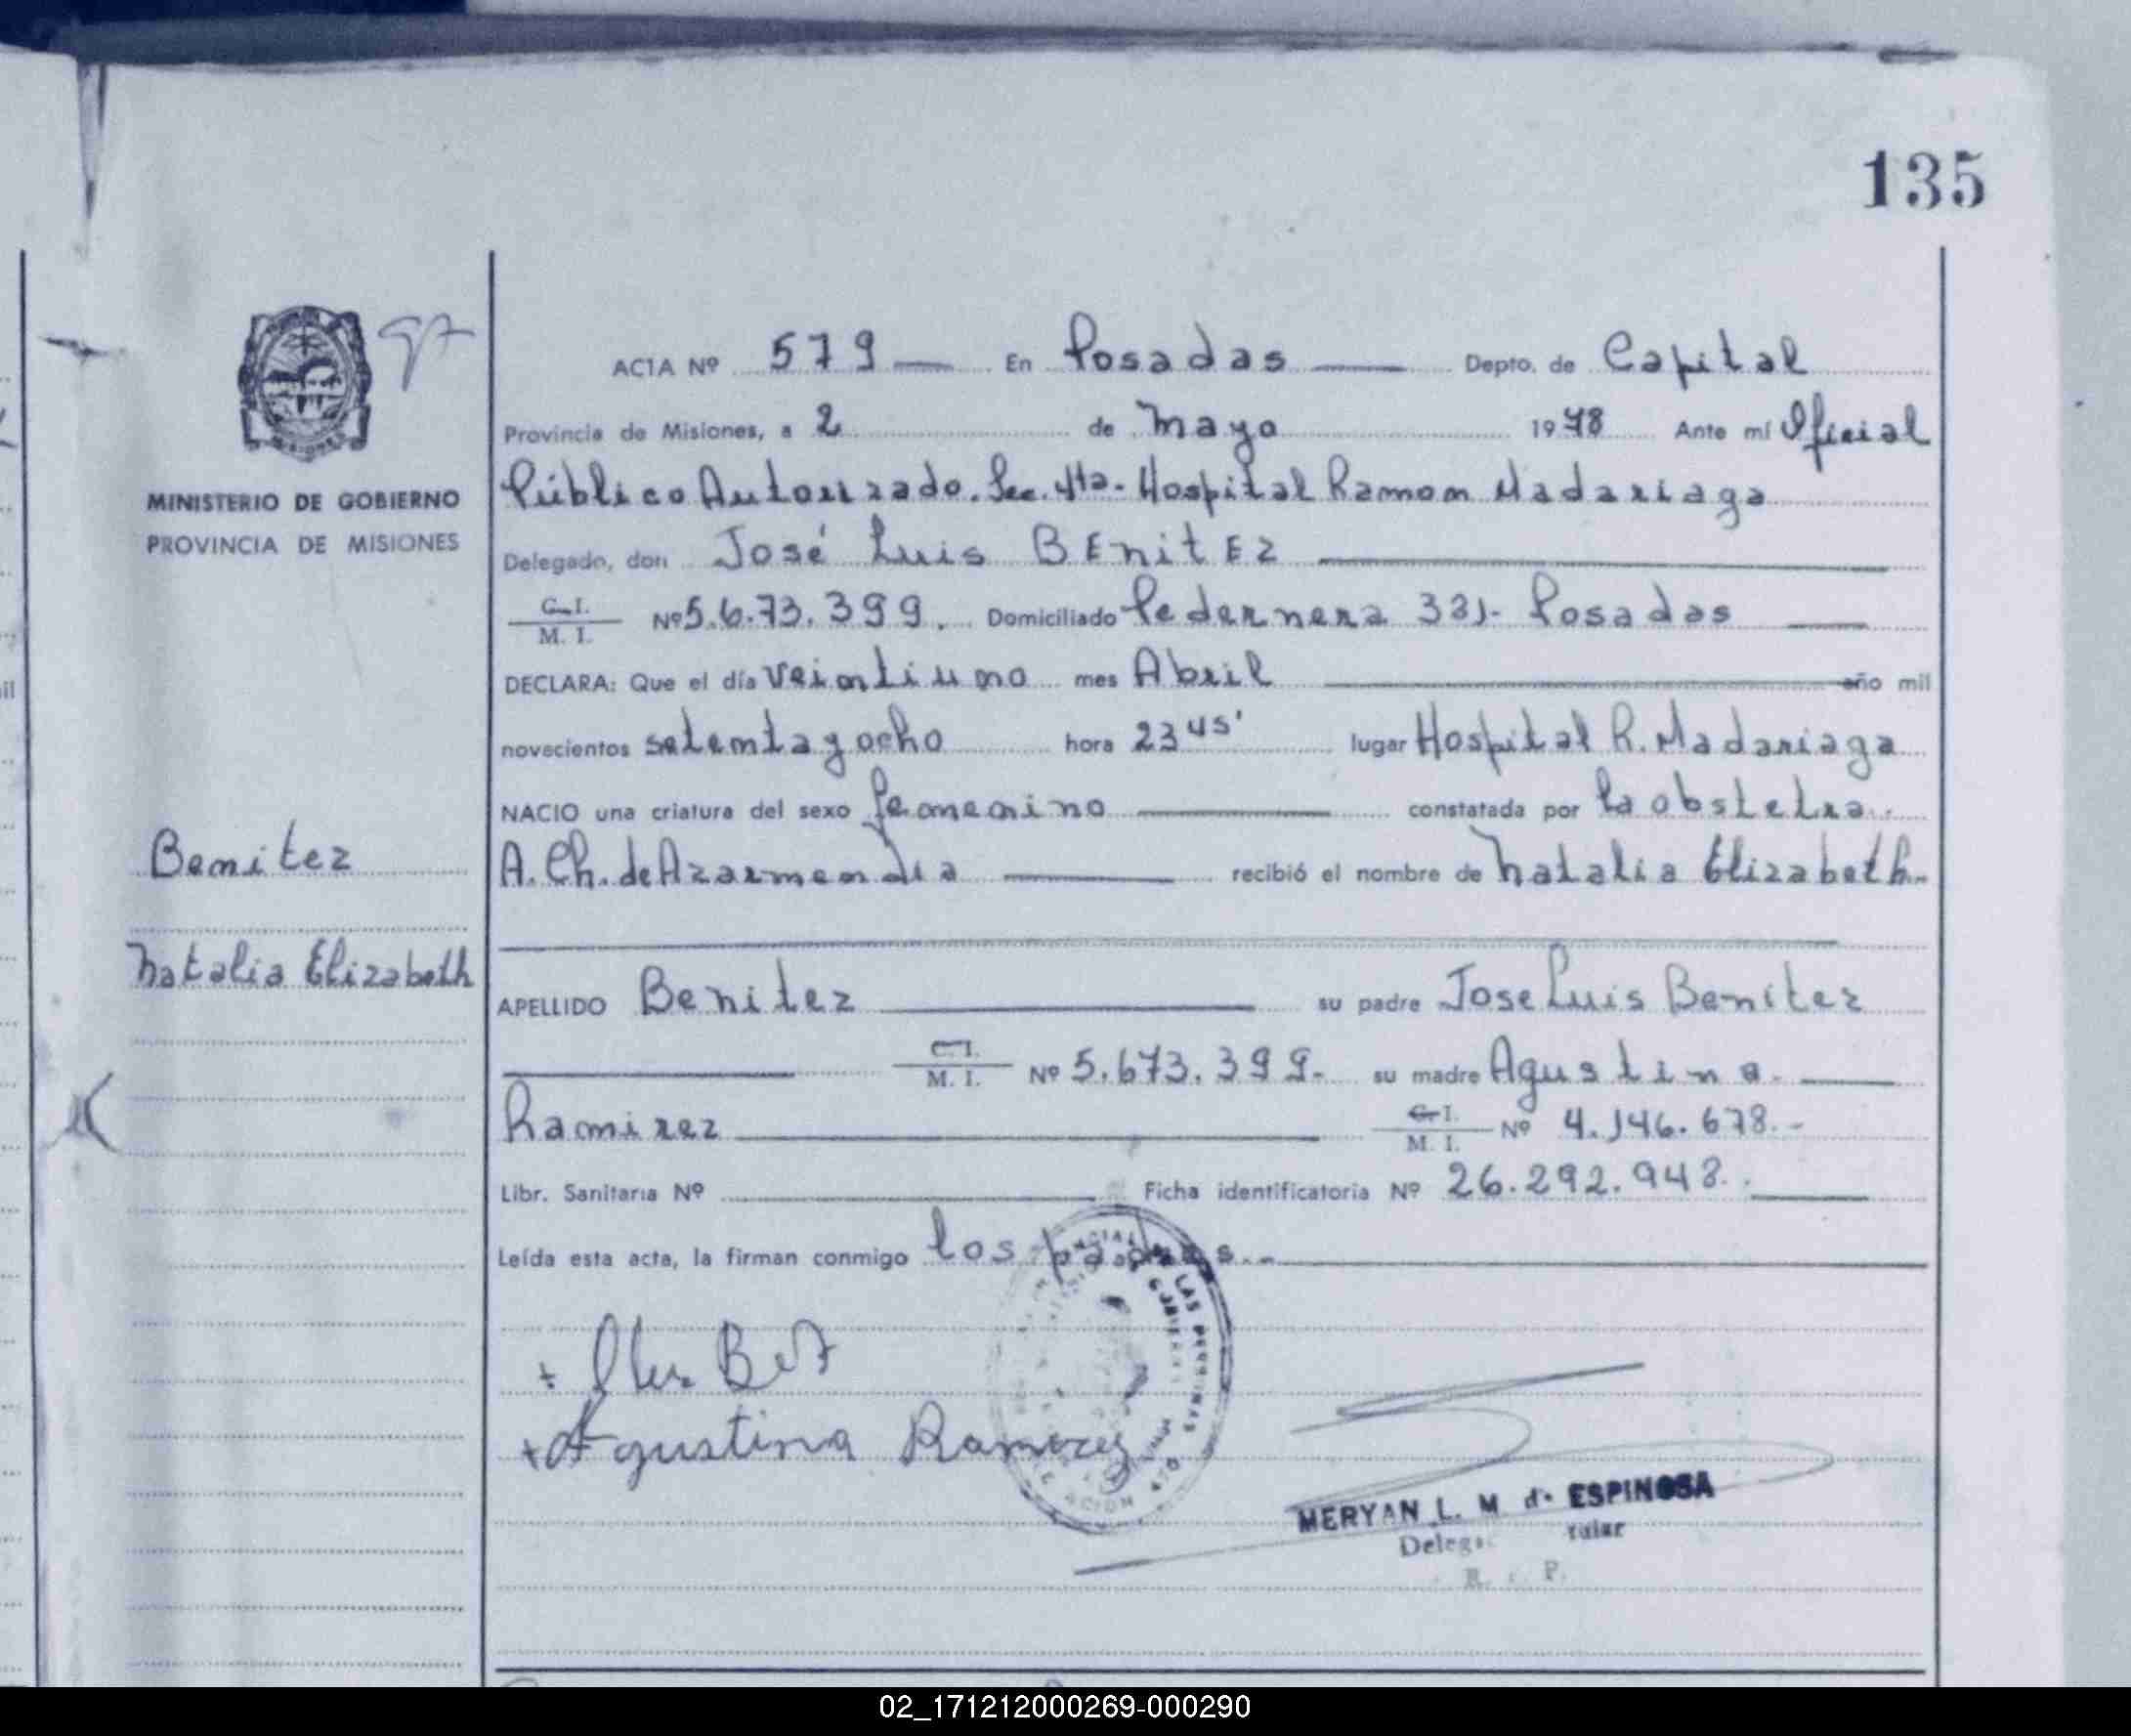 135
ACTA Nº 579 En Posadas Depto. de Capital
Provincia de Misiones, a 2 de Mayo 1978 Ante mí Oficial
Público Autorizado. Sec. 4ta. Hospital Ramon Madariaga
MINISTERIO DE GOBIERNO
PROVINCIA DE MISIONES
Delegado, don José Luis BEnitEz
C.I. M. I. Nº 5.673.399. Domiciliado Pedernera 331- Posadas
DECLARA: Que el día Veintiuno mes Abril año mil
novecientos setenta y ocho hora 23 45' lugar Hospital R. Madariaga
NACIO una criatura del sexo femenino constatada por la obstetra.
Benitez
A. Ch. de Azarmendia recibió el nombre de Natalia Elizabeth.
Natalia Elizabeth
APELLIDO Benitez su padre Jose Luis Benítez
C.I. M. I. Nº 5.673.399.- su madre Agustina.
Ramirez C.I. M. I. Nº 4.146.678.-
Libr. Sanitaria Nº Ficha identificatoria Nº 26.292.948.
Leída esta acta, la firman conmigo los padres.-
Agustina Ramirez
MERYAN L. M de ESPINOSA
02_171212000269-000290